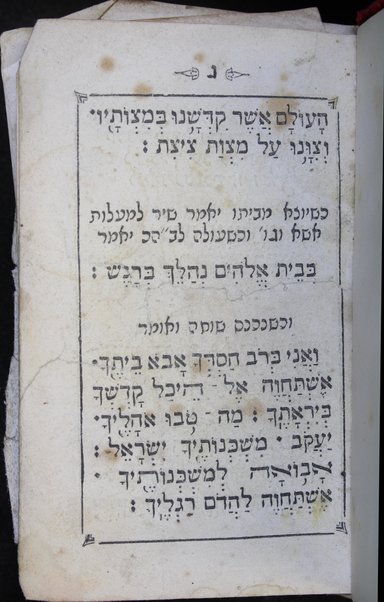 ג
הָעוֹלָם אֲשֶׁר קִדְּשָׁנוּ בְּמִצְוֹתָיו׳
וְצִוָּנוּ עַל מִצְוַת צִיצִת :
כשיוצא מביתו יאמר שיר למעלות
אשא וגו׳ וכשעולה לב״הכ יאמר
בְּבֵית אֱלֹהִים נְהַלֵּךְ בְּרָגֶשׁ :
וכשנכנס שוחה ואומר
וַאֲנִי בְּרֹב חַסְדְּךָ אָבֹא בֵיתֶךָ׳
אֶשְׁתַּחֲוֶה אֶל הֵיכַל קָדְשְׁךָ
בְּיִרְאָתֶךָ : מַה טֹּבוּ אֹהָלֶיךָ
יַעֲקֹב ׳ מִשְׁכְּנוֹתֶיךָ יִשְׂרָאֵל :
אָבוֹאָה לְמִשְׁכְּנוֹתֶיךָ ׳
אֶשְׁתַּחֲוֶה לַהֲדֹם רַגְלֶיךָ :